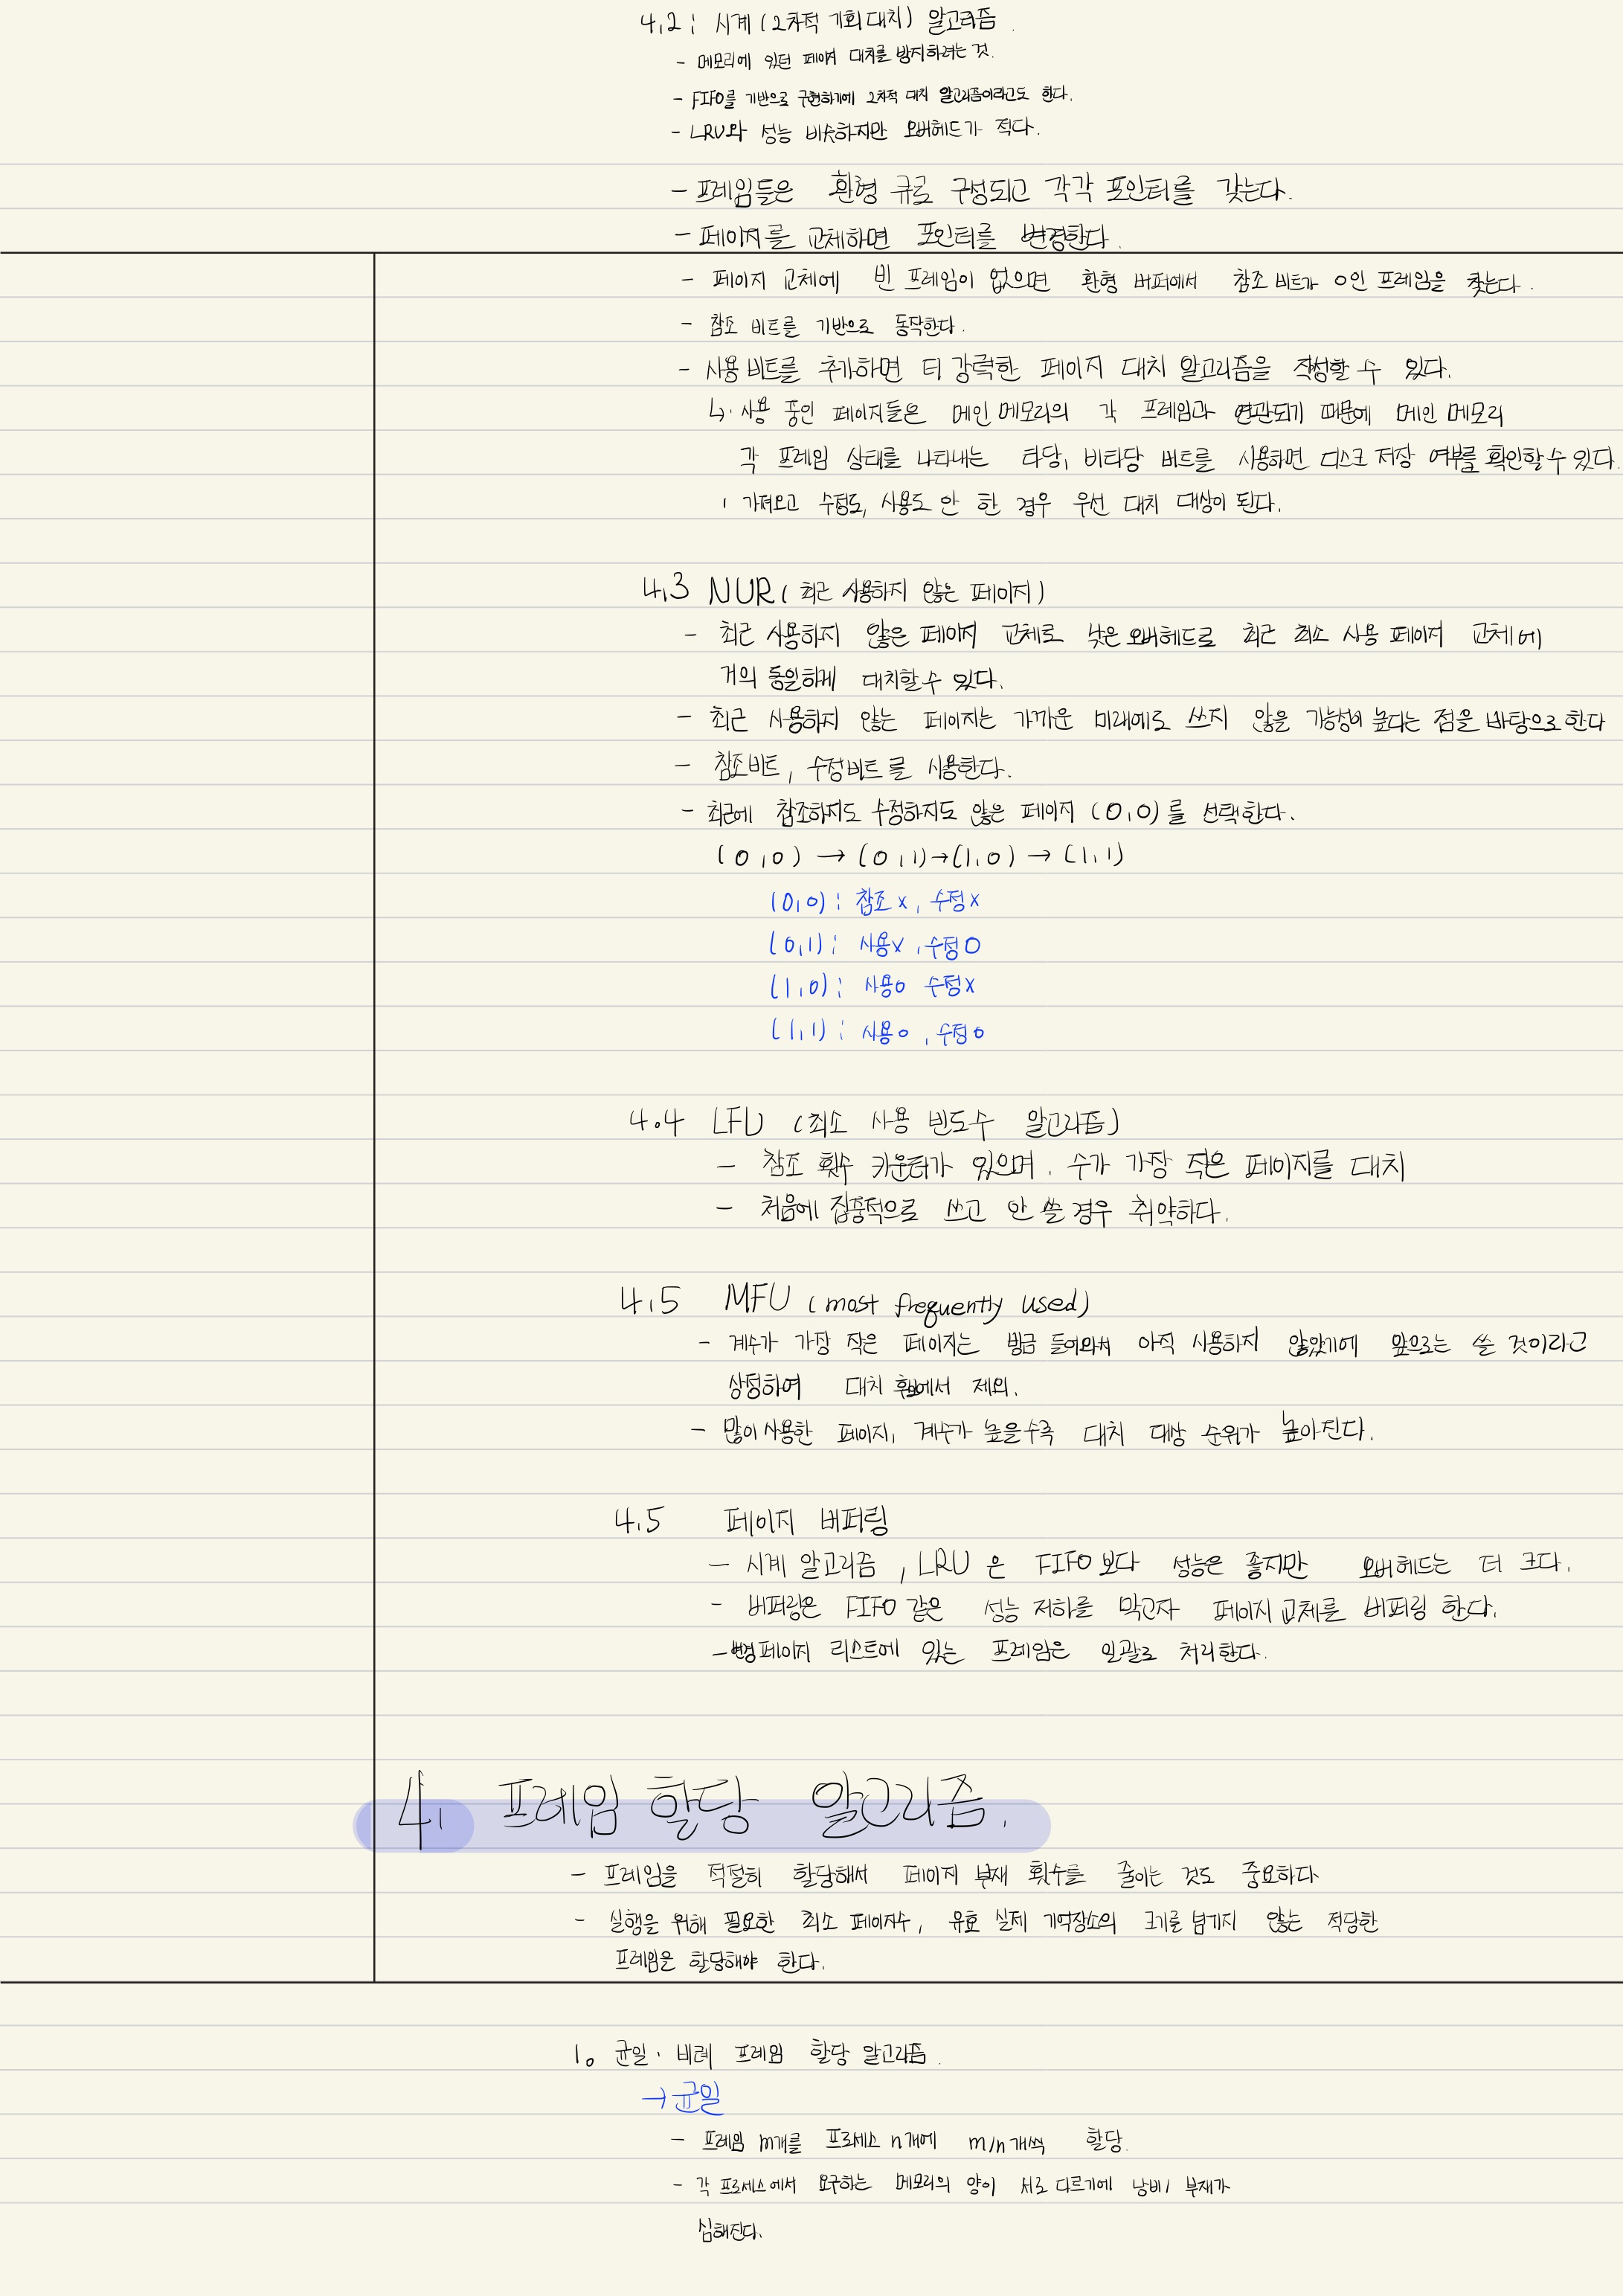 4.2: 시계(2차적 기회 대치) 알고리즘.
- 메모리에 있던 페이지 대치를 방지하려는 것.
- FIFO를 기반으로 구현하기에 2차적 대치 알고리즘이라고도 한다.
- LRU와 성능 비슷하지만 오버헤드가 적다.
- 프레임들은 환형 큐로 구성되고 각각 포인터를 갖는다.
- 페이지를 교체하면 포인터를 변경한다.
- 페이지 교체에 빈 프레임이 없으면 환형 버퍼에서 참조 비트가 0인 프레임을 찾는다.
- 참조 비트를 기반으로 동작한다.
- 사용 비트를 추가하면 더 강력한 페이지 대치 알고리즘을 작성할 수 있다.
↳. 사용 중인 페이지들은 메인 메모리의 각 프레임과 연관되기 때문에 메인 메모리
각 프레임 상태를 나타내는 타당, 비타당 비트를 사용하면 디스크 저장 여부를 확인할 수 있다.
, 가져오고 수정도, 사용도 안 한 경우 우선 대치 대상이 된다.
4.3 NUR (최근 사용하지 않은 페이지)
- 최근 사용하지 않은 페이지 교체로 낮은 오버헤드로 최근 최소 사용 페이지 교체에
거의 동일하게 대치할 수 있다.
- 최근 사용하지 않는 페이지는 가까운 미래에도 쓰지 않을 가능성이 높다는 점을 바탕으로 한다
- 참조비트, 수정비트를 사용한다.
- 최근에 참조하지도 수정하지도 않은 페이지 (0,0)를 선택한다.
(0,0) → (0,1) → (1,0) → (1,1)
(0,0): 참조x, 수정x
(0,1): 사용x, 수정O
(1,0): 사용o 수정x
(1,1): 사용o, 수정o
4.4 LFU (최소 사용 빈도수 알고리즘)
- 참조 횟수 카운터가 있으며, 수가 가장 적은 페이지를 대치
- 처음에 집중적으로 쓰고 안 쓸 경우 취약하다.
4.5 MFU (most frequently used)
- 계수가 가장 작은 페이지는 방금 들어와서 아직 사용하지 않았기에 앞으로는 쓸 것이라고
상정하여 대치 후보에서 제외.
- 많이 사용한 페이지, 계수가 높을수록 대치 대상 순위가 높아진다.
4.5 페이지 버퍼링
- 시계 알고리즘, LRU은 FIFO보다 성능은 좋지만 오버헤드는 더 크다.
- 버퍼링은 FIFO 같은 성능 저하를 막고자 페이지 교체를 버퍼링 한다.
- 변경 페이지 리스트에 있는 프레임은 일괄로 처리한다.
4. 프레임 할당 알고리즘.
- 프레임을 적절히 할당해서 페이지 부재 횟수를 줄이는 것도 중요하다
- 실행을 위해 필요한 최소 페이지수, 유효 실제 기억장소의 크기를 넘기지 않는 적당한
프레임은 할당해야 한다.
1. 균일·비례 프레임 할당 알고리즘.
→ 균일
- 프레임 m개를 프로세스 n개에 m/n개씩 할당.
- 각 프로세스에서 요구하는 메모리의 양이 서로 다르기에 낭비/부재가
심해진다.